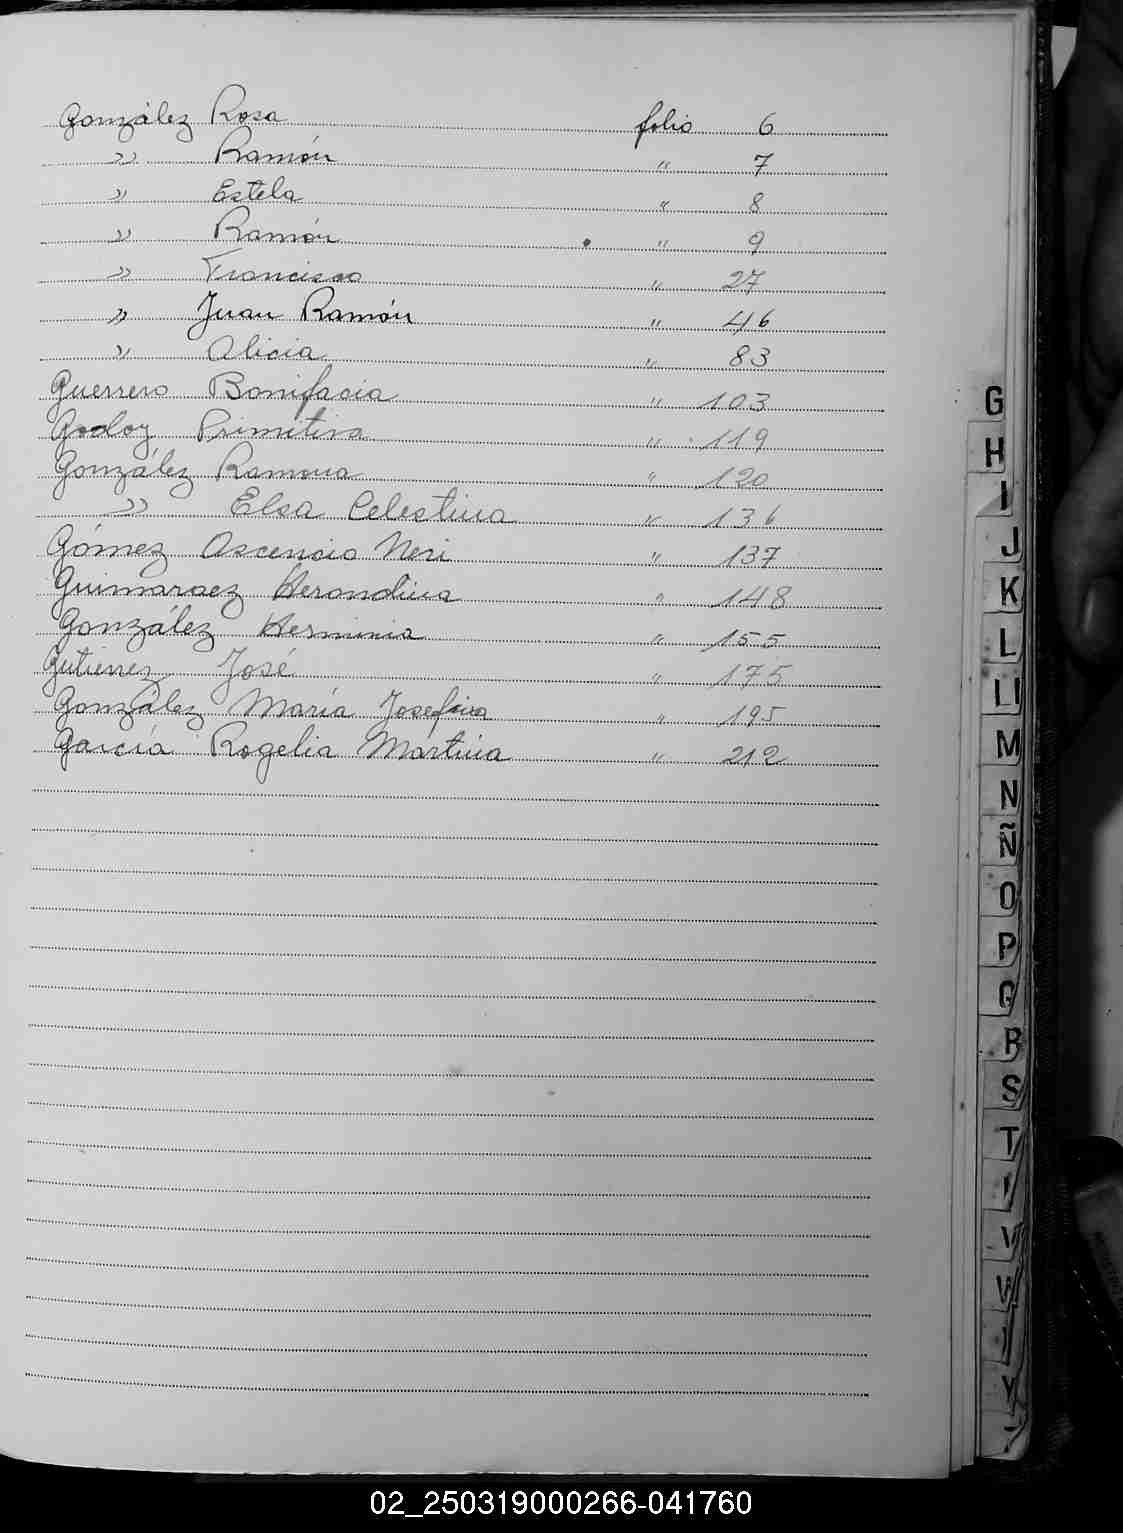 González Rosa folio 6
" Ramón " 7
" Estela " 8
" Ramón " 9
" Francisco " 27
" Juan Ramón " 46
" Alicia " 83
Guerrero Bonifacia " 103
Godoy Primitiva " 119
González Ramona " 120
" Elsa Celestina " 136
Gómez Ascencio Neri " 137
Guimaraez Herondina " 148
González Herminia " 155
Gutierrez José " 175
González María Josefina " 195
García Rogelia Martina " 212
G
H
I
J
K
L
Ll
M
N
Ñ
O
P
Q
R
S
T
V
W
Y
02_250319000266-041760